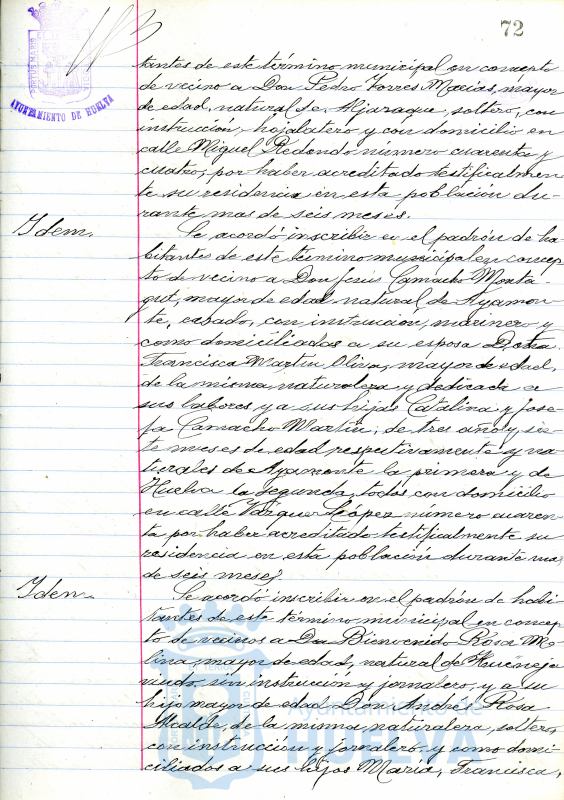 72
PORTUS MARIS
AYUNTAMIENTO DE HUELVA
tantes de este término municipal en concepto
de vecino a Don Pedro Torres Macias, mayor
de edad, natural de Aljaraque, soltero, con
instrucción, hojalatero y con domicilio en
calle Miguel Redondo número cuarenta y
cuatro, por haber acreditado testificalmen-
te su residencia en esta población du-
rante mas de seis meses.
Idem.
Se acordó inscribir en el padrón de ha-
bitantes de este término municipal en concep-
to de vecino a Don Jesús Camacho Monta-
gut, mayor de edad natural de Ayamon-
te, casado, con instrucción, marinero y
como domiciliados a su esposa Doña
Francisca Martin Oliva, mayor de edad,
de la misma naturaleza y dedicada a
sus labores y a sus hijas Catalina y Jose-
fa Camacho Martin, de tres años y sie-
te meses de edad respectivamente y na-
turales de Ayamonte la primera y de
Huelva la segunda, todos con domicilio
en calle Vázquez López número cuaren-
ta por haber acreditado testificalmente su
residencia en esta población durante mas
de seis meses
Iden.
Se acordó inscribir en el padrón de habi-
tantes de este término municipal en concep-
to de vecinos a Don Bienvenido Rosa Mo-
lina, mayor de edad, natural de Hueneja
viudo, sin instrucción y jornalero, y a su
hijo mayor de edad Don Andrés Rosa
Alcalde, de la misma naturaleza, soltero,
con instrucción y jornalero y como domi-
ciliados a sus hijos Maria, Francisca,
Ayuntamiento de
HUELVA